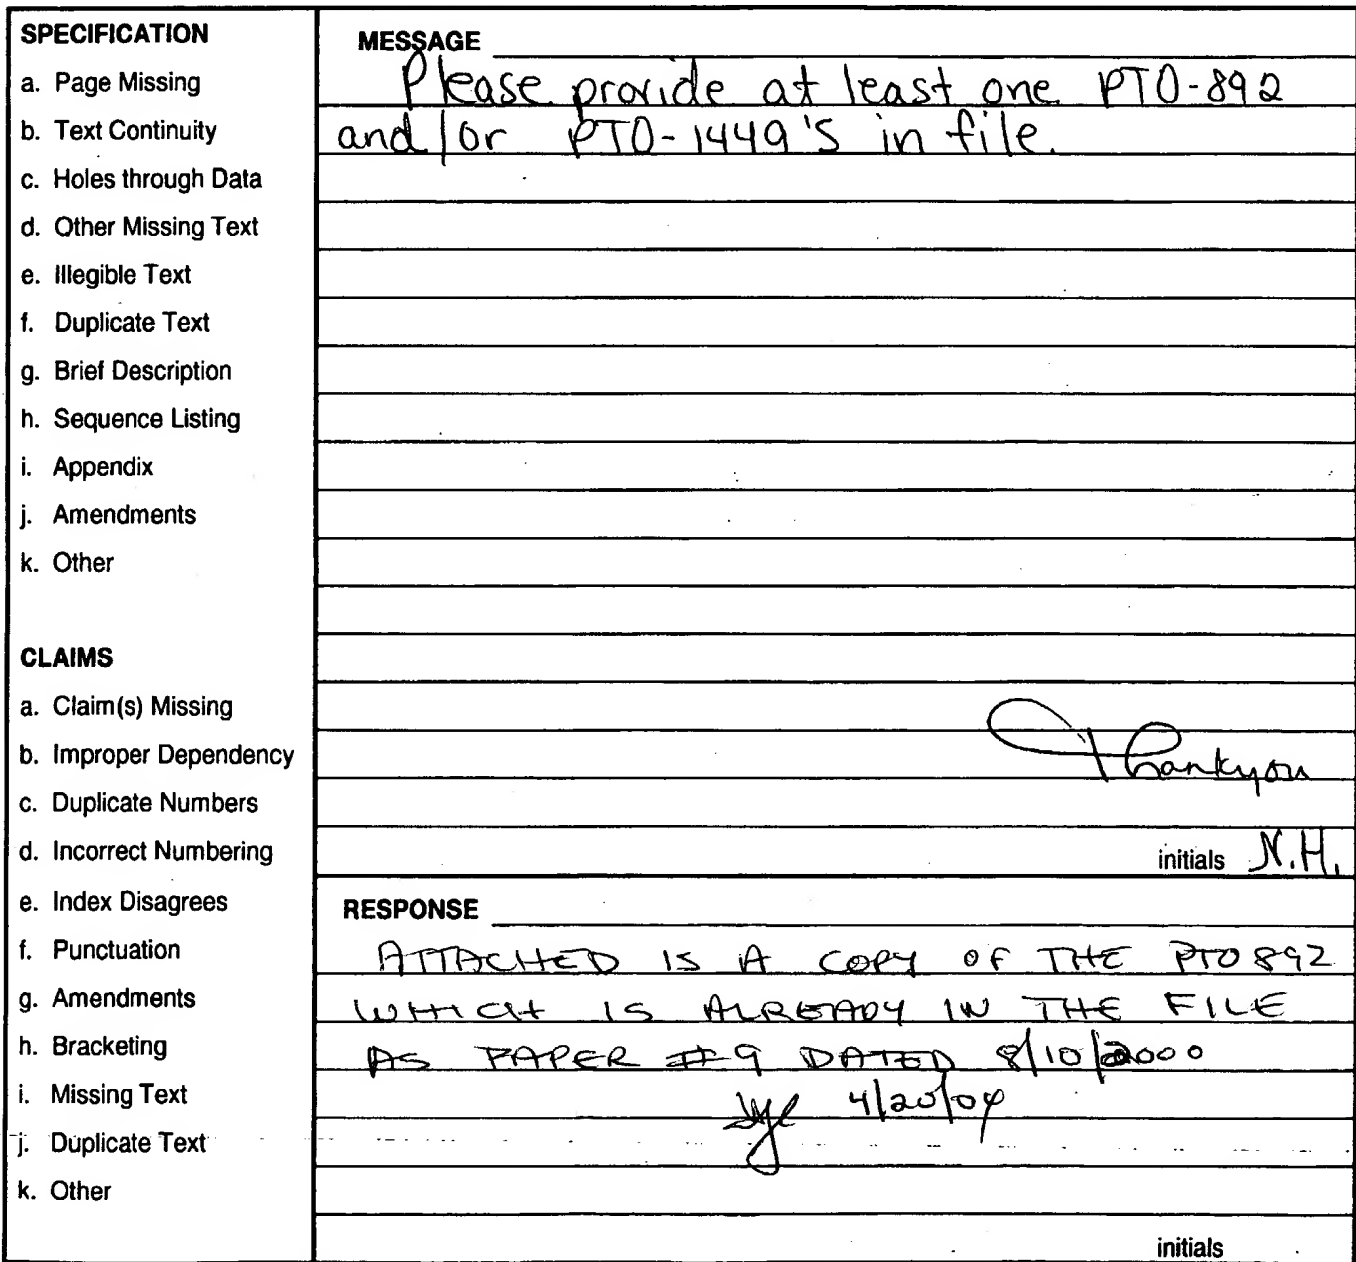 SPECIFICATION
a. Page Missing
b. Text Continuity
c. Holes through Data
d. Other Missing Text
e. Illegible Text
f. Duplicate Text
g. Brief Description
h. Sequence Listing
i. Appendix
j. Amendments
k. Other
CLAIMS
a. Claim(s) Missing
b. Improper Dependency
c. Duplicate Numbers
d. Incorrect Numbering
e. Index Disagrees
f. Punctuation
g. Amendments
h. Bracketing
i. Missing Text
j. Duplicate Text
k. Other
MESSAGE
Please provide at least one PTO-892
and/or PTO-1449's in file.
Thankyou
initials N.H.
RESPONSE
ATTACHED IS A COPY OF THE PTO892
WHICH IS ALREADY IN THE FILE
AS PAPER #9 DATED 8/10/2000
4/20/04
initials